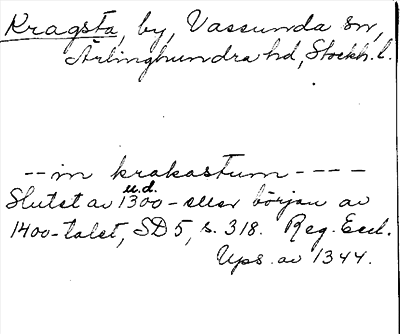 Kragsta, by, Vassunda sn,
Ärlinghundra hd, Stockh. l.
--in krakastum----
u.d.
Slutet av 1300- eller början av
1400-talet, SD 5, s. 318. Reg. Eccl.
Ups. av 1344.